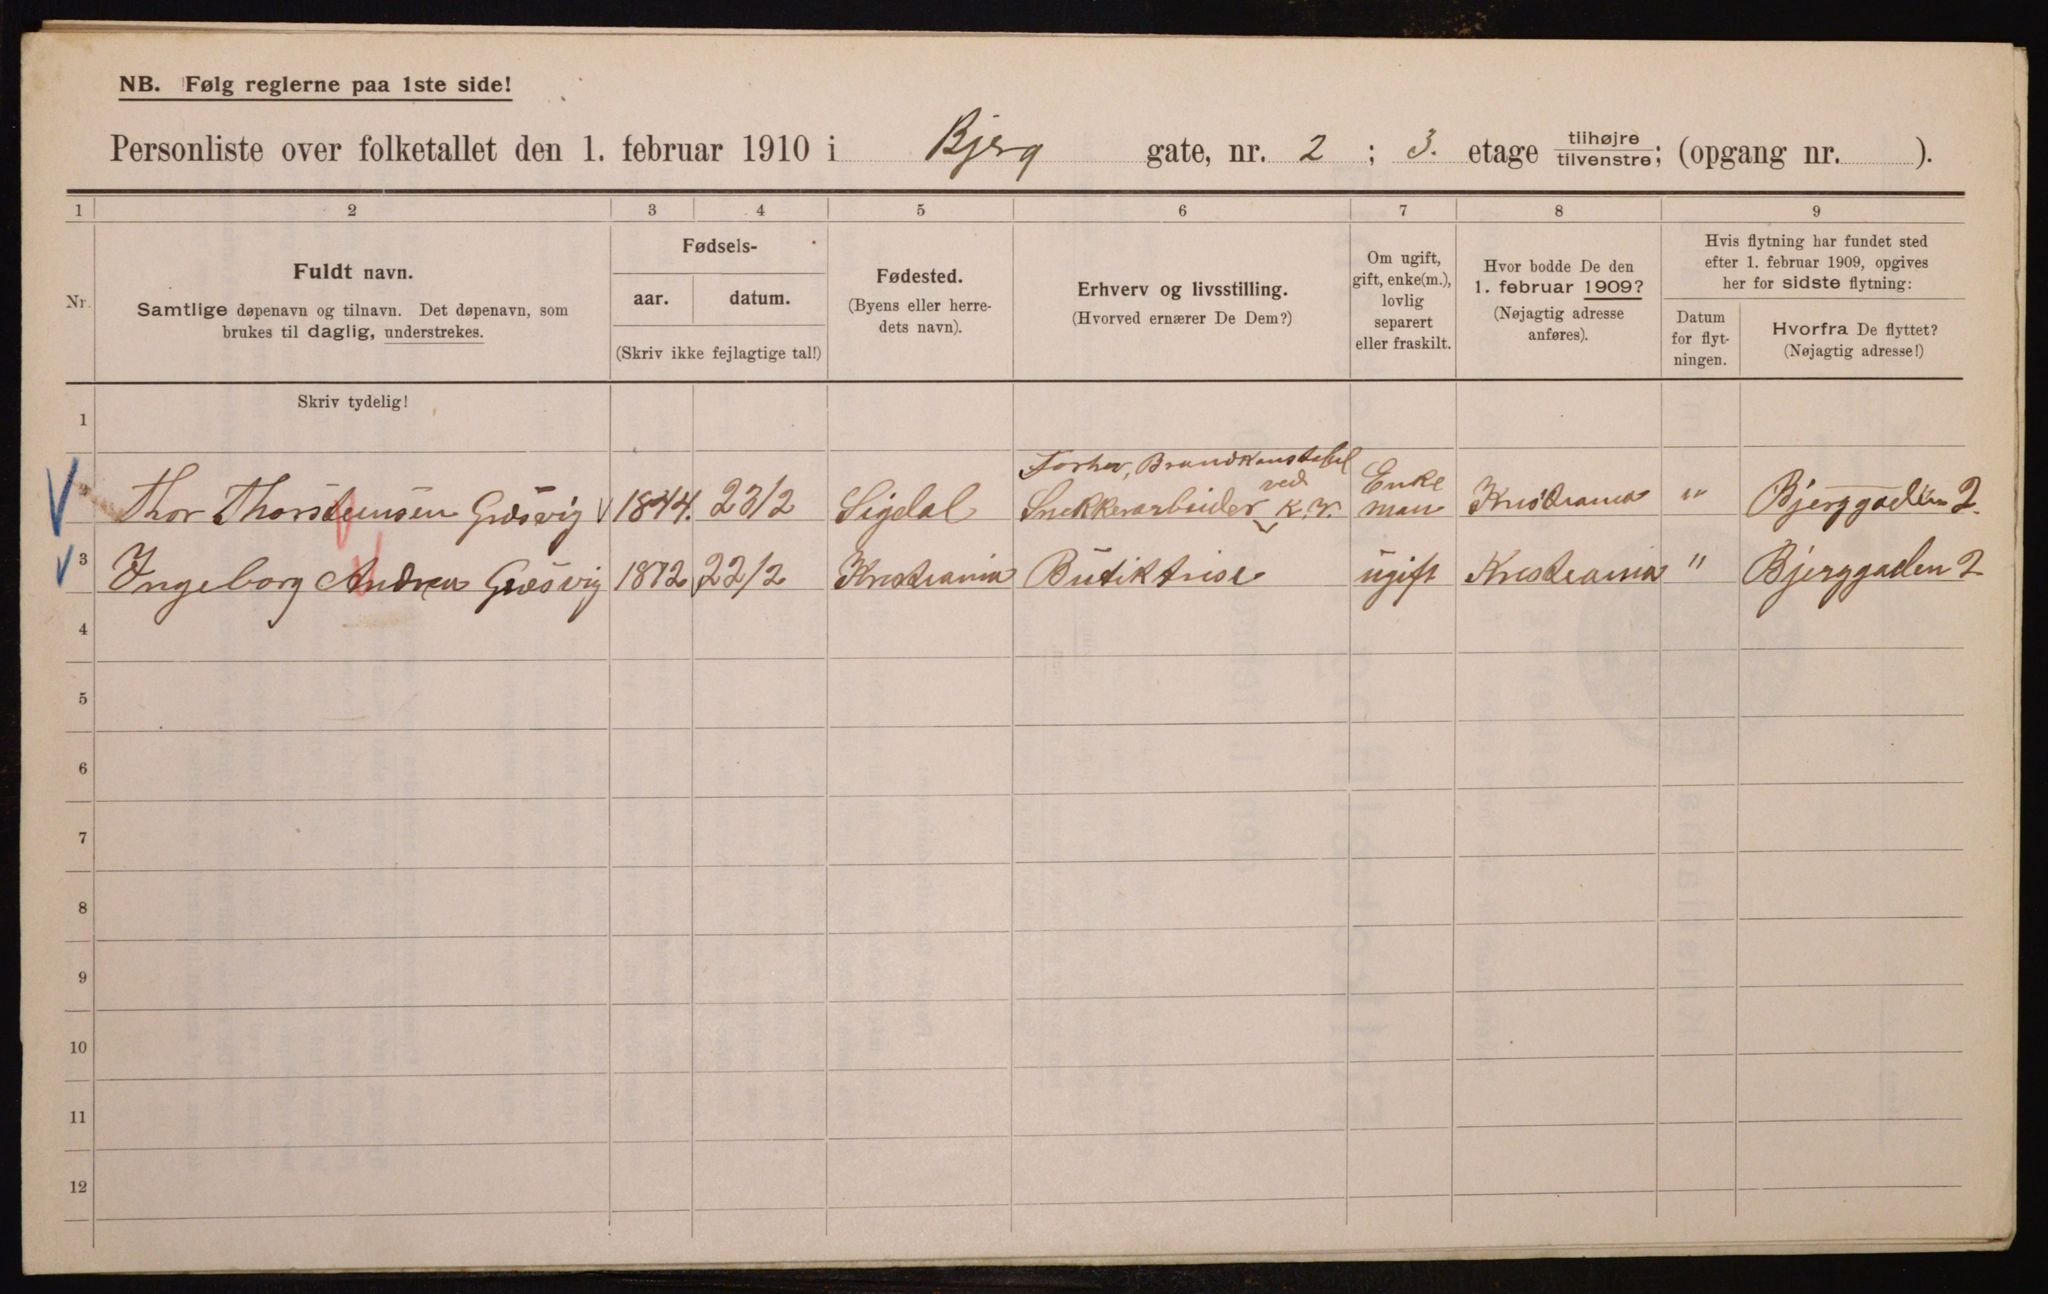 NB. Følg reglerne paa 1ste side!
Personliste over folketallet den 1. februar 1910 i Bjerg gate, nr. 2 ; 3. etage tilhøjre/tilvenstre; (opgang nr. ).
1 2 3 4 5 6 7 8 9
Nr.
Fuldt navn.
Samtlige døpenavn og tilnavn. Det døpenavn, som
brukes til daglig, understrekes.
Fødsels-
aar. datum.
(Skriv ikke fejlagtige tal!)
Fødested.
(Byens eller herre-
dets navn).
Erhverv og livsstilling.
(Hvorved ernærer De Dem?)
Om ugift,
gift, enke(m.),
lovlig
separert
eller fraskilt.
Hvor bodde De den
1. februar 1909?
(Nøjagtig adresse
anføres).
Hvis flytning har fundet sted
efter 1. februar 1909, opgives
her for sidste flytning:
Datum
for flyt-
ningen.
Hvorfra De flyttet?
(Nøjagtig adresse!)
Skriv tydelig!
1
Thor Thorstensen Græsvig 1844. 23/2 Sigdal Forhv, Brandkonstabel Snekkerarbeider ved K.V. Enke man Kristiania " Bjerggaden 2.
3 Ingeborg Andrea Græsvig 1872 22/2 Kristiania Butiktrise ugift Kristiania " Bjerggaden 2
4
5
6
7
8
9
10
11
12